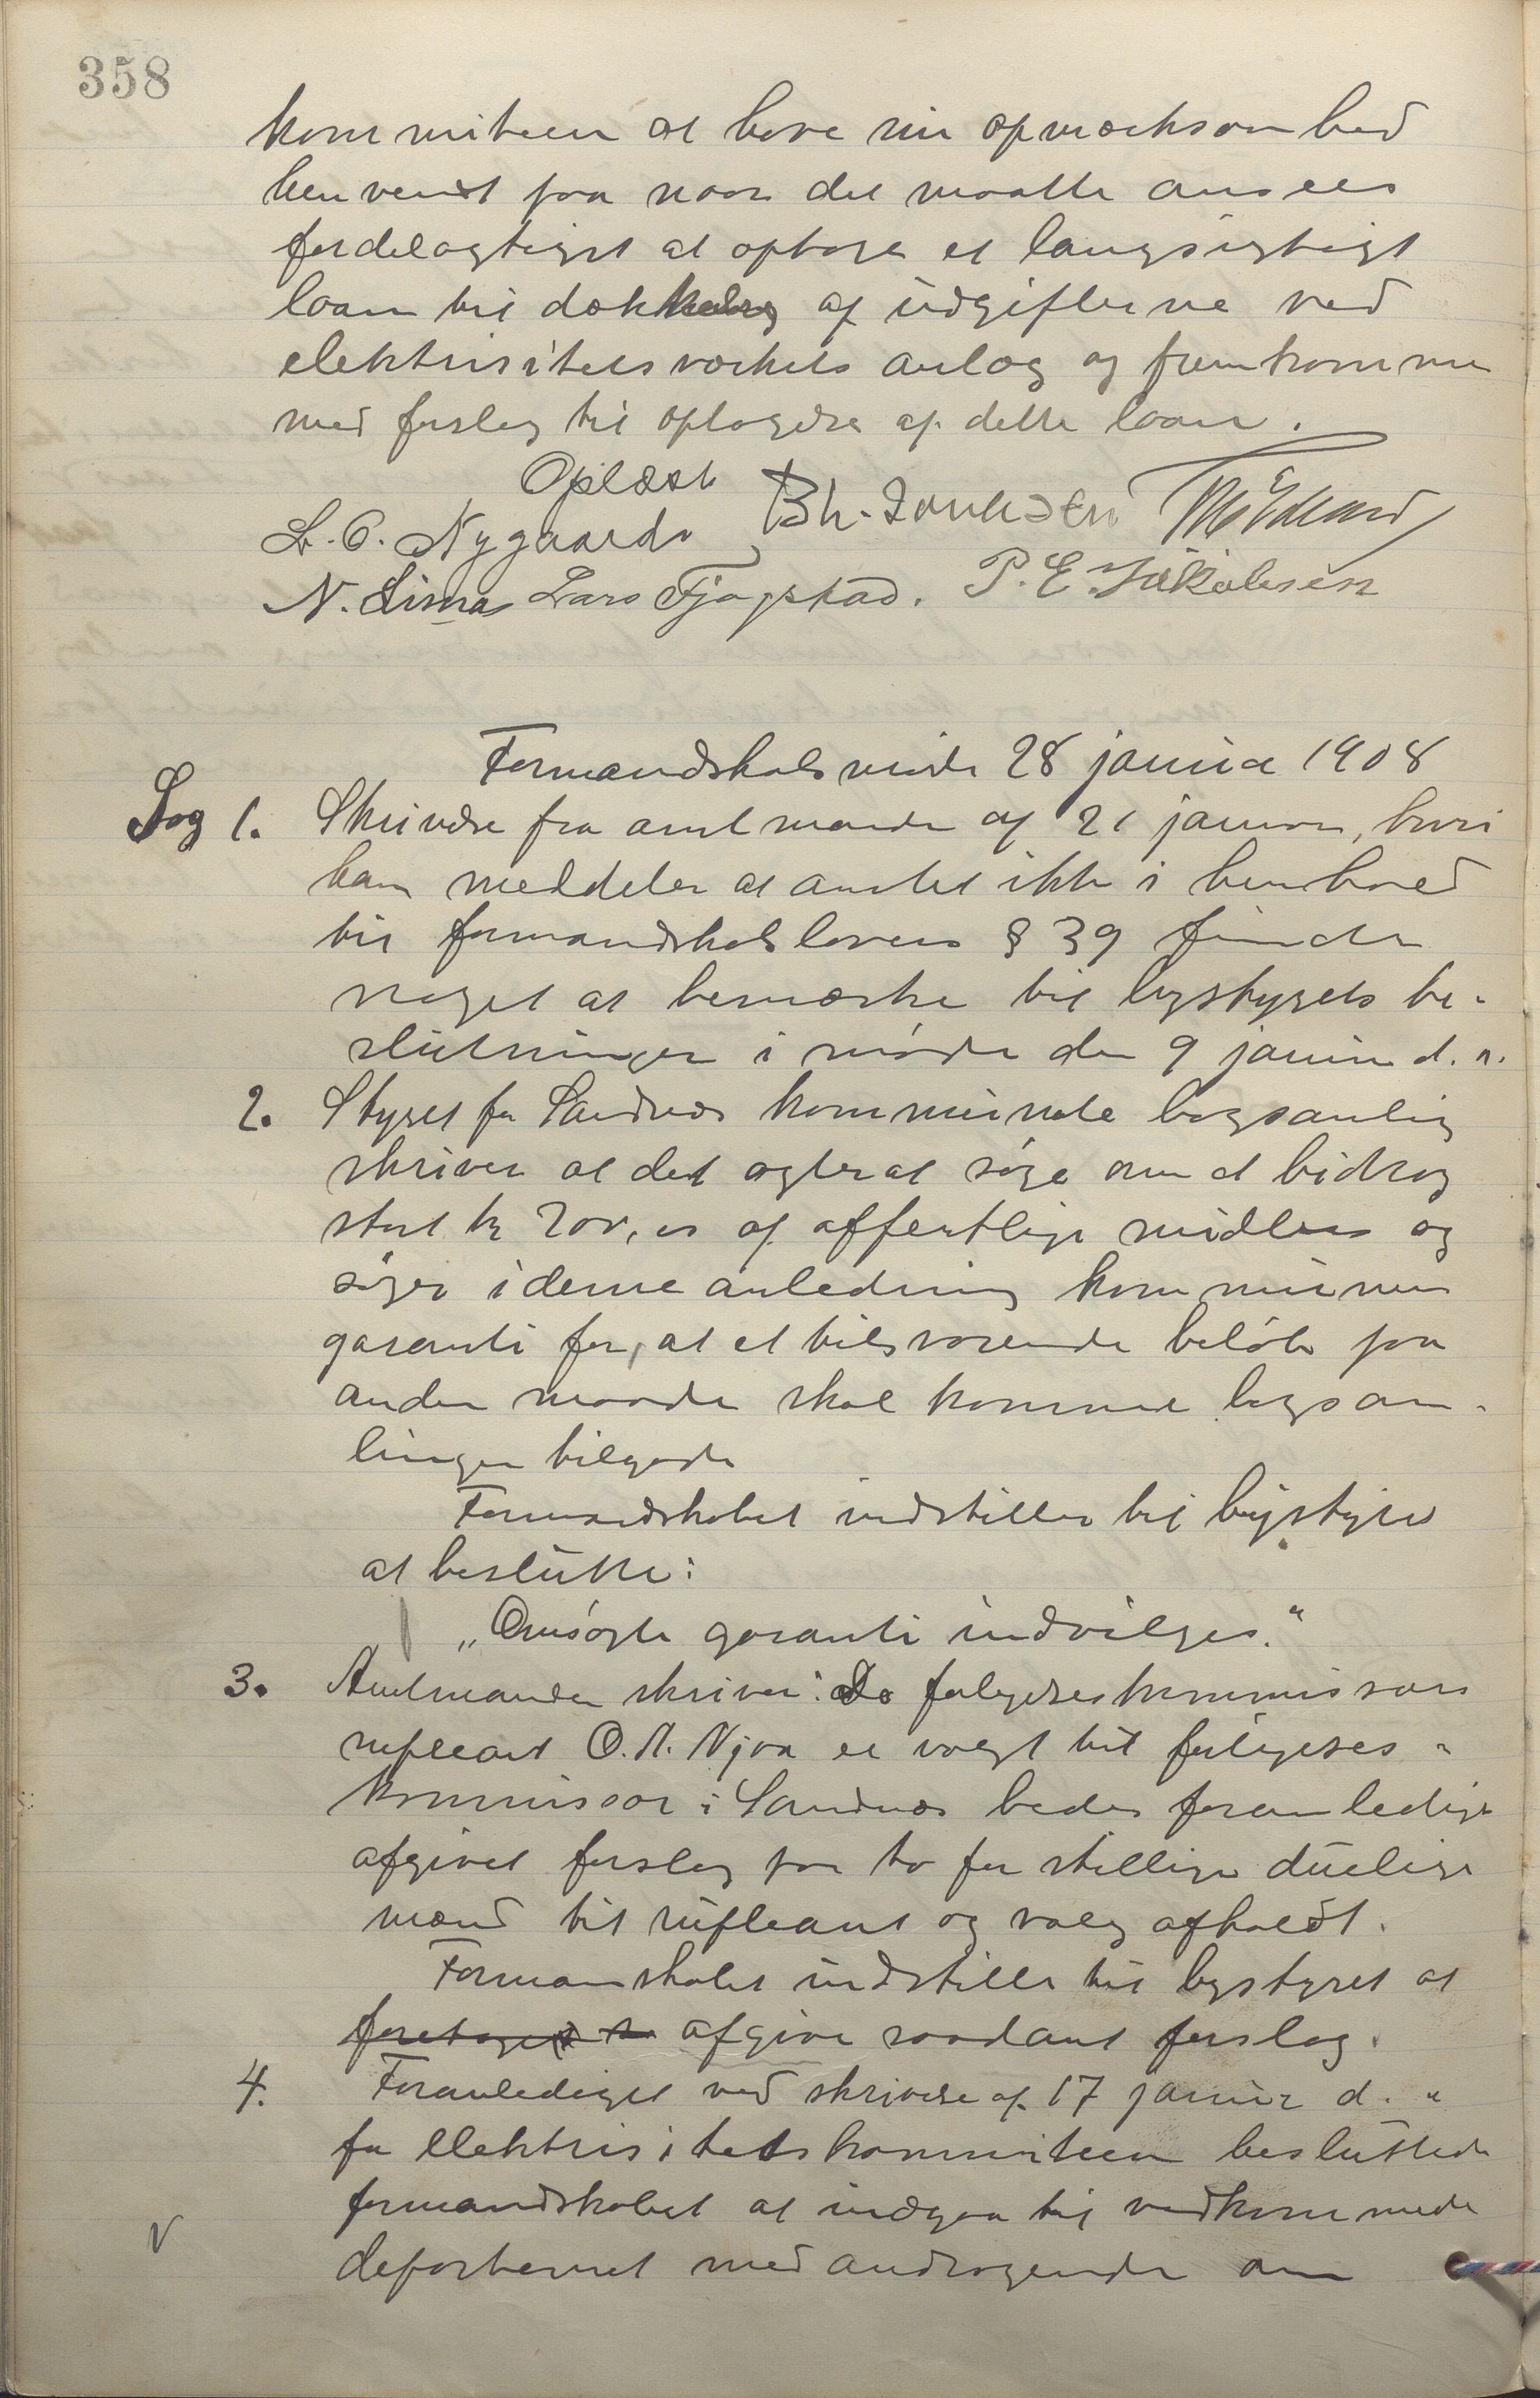 358
kommiteen at have sin opmærksomhed
henvendt paa naar det maatte ansees
fordelagtigst at optage et langsigtigt
laan til dækkelse af udgifterne ved
elektrisitetsværkets anlæg og fremkomme
med forslag til optagelse af dette laan.
Oplæst
L. O. Nygaard Bh. Jonassen
N. Lima Lars Fjogstad. P. E. Jakobsen
Formandskabsmøde 28 januar 1908
Sag 1. Skrivelse fra amtmanden af 21 januar, hvori
han meddeler at amtet ikke i henhold
til formandskabslovens § 39 finder
noget at bemærke til bystyrets be-
slutninger i møde den 9 januar d. a.
2. Styret for Sandnæs kommunale bogsamling
skriver at det agter at søge om et bidrag
stort kr 200,00 af offentlige midler og
søger i denne anledning kommunens
garanti for, at et tilsvarende beløb paa
anden maade skal komme bogsam-
lingen tilgode
Formandskabet indstiller til bystyret
at beslutte:
„Omsøgte garanti indvilges."
3. Amtmanden skriver: Da forligelseskommissær
supleant O. A. Njaa er valgt til forligelses-
kommissær i Sandnæs bedes foranlediget
afgivet forslag paa to for stillingen duelige
mænd til supleant og valg afholdt.
Formanskabet indstiller til bystyret at
foretage afgive saadant forslag.
4. Foranlediget ved skrivelse af 17 januar d. a.
fra elektrisitetskommiteen besluttede
formandskabet at indgaa til vedkommende
departement med andragende om